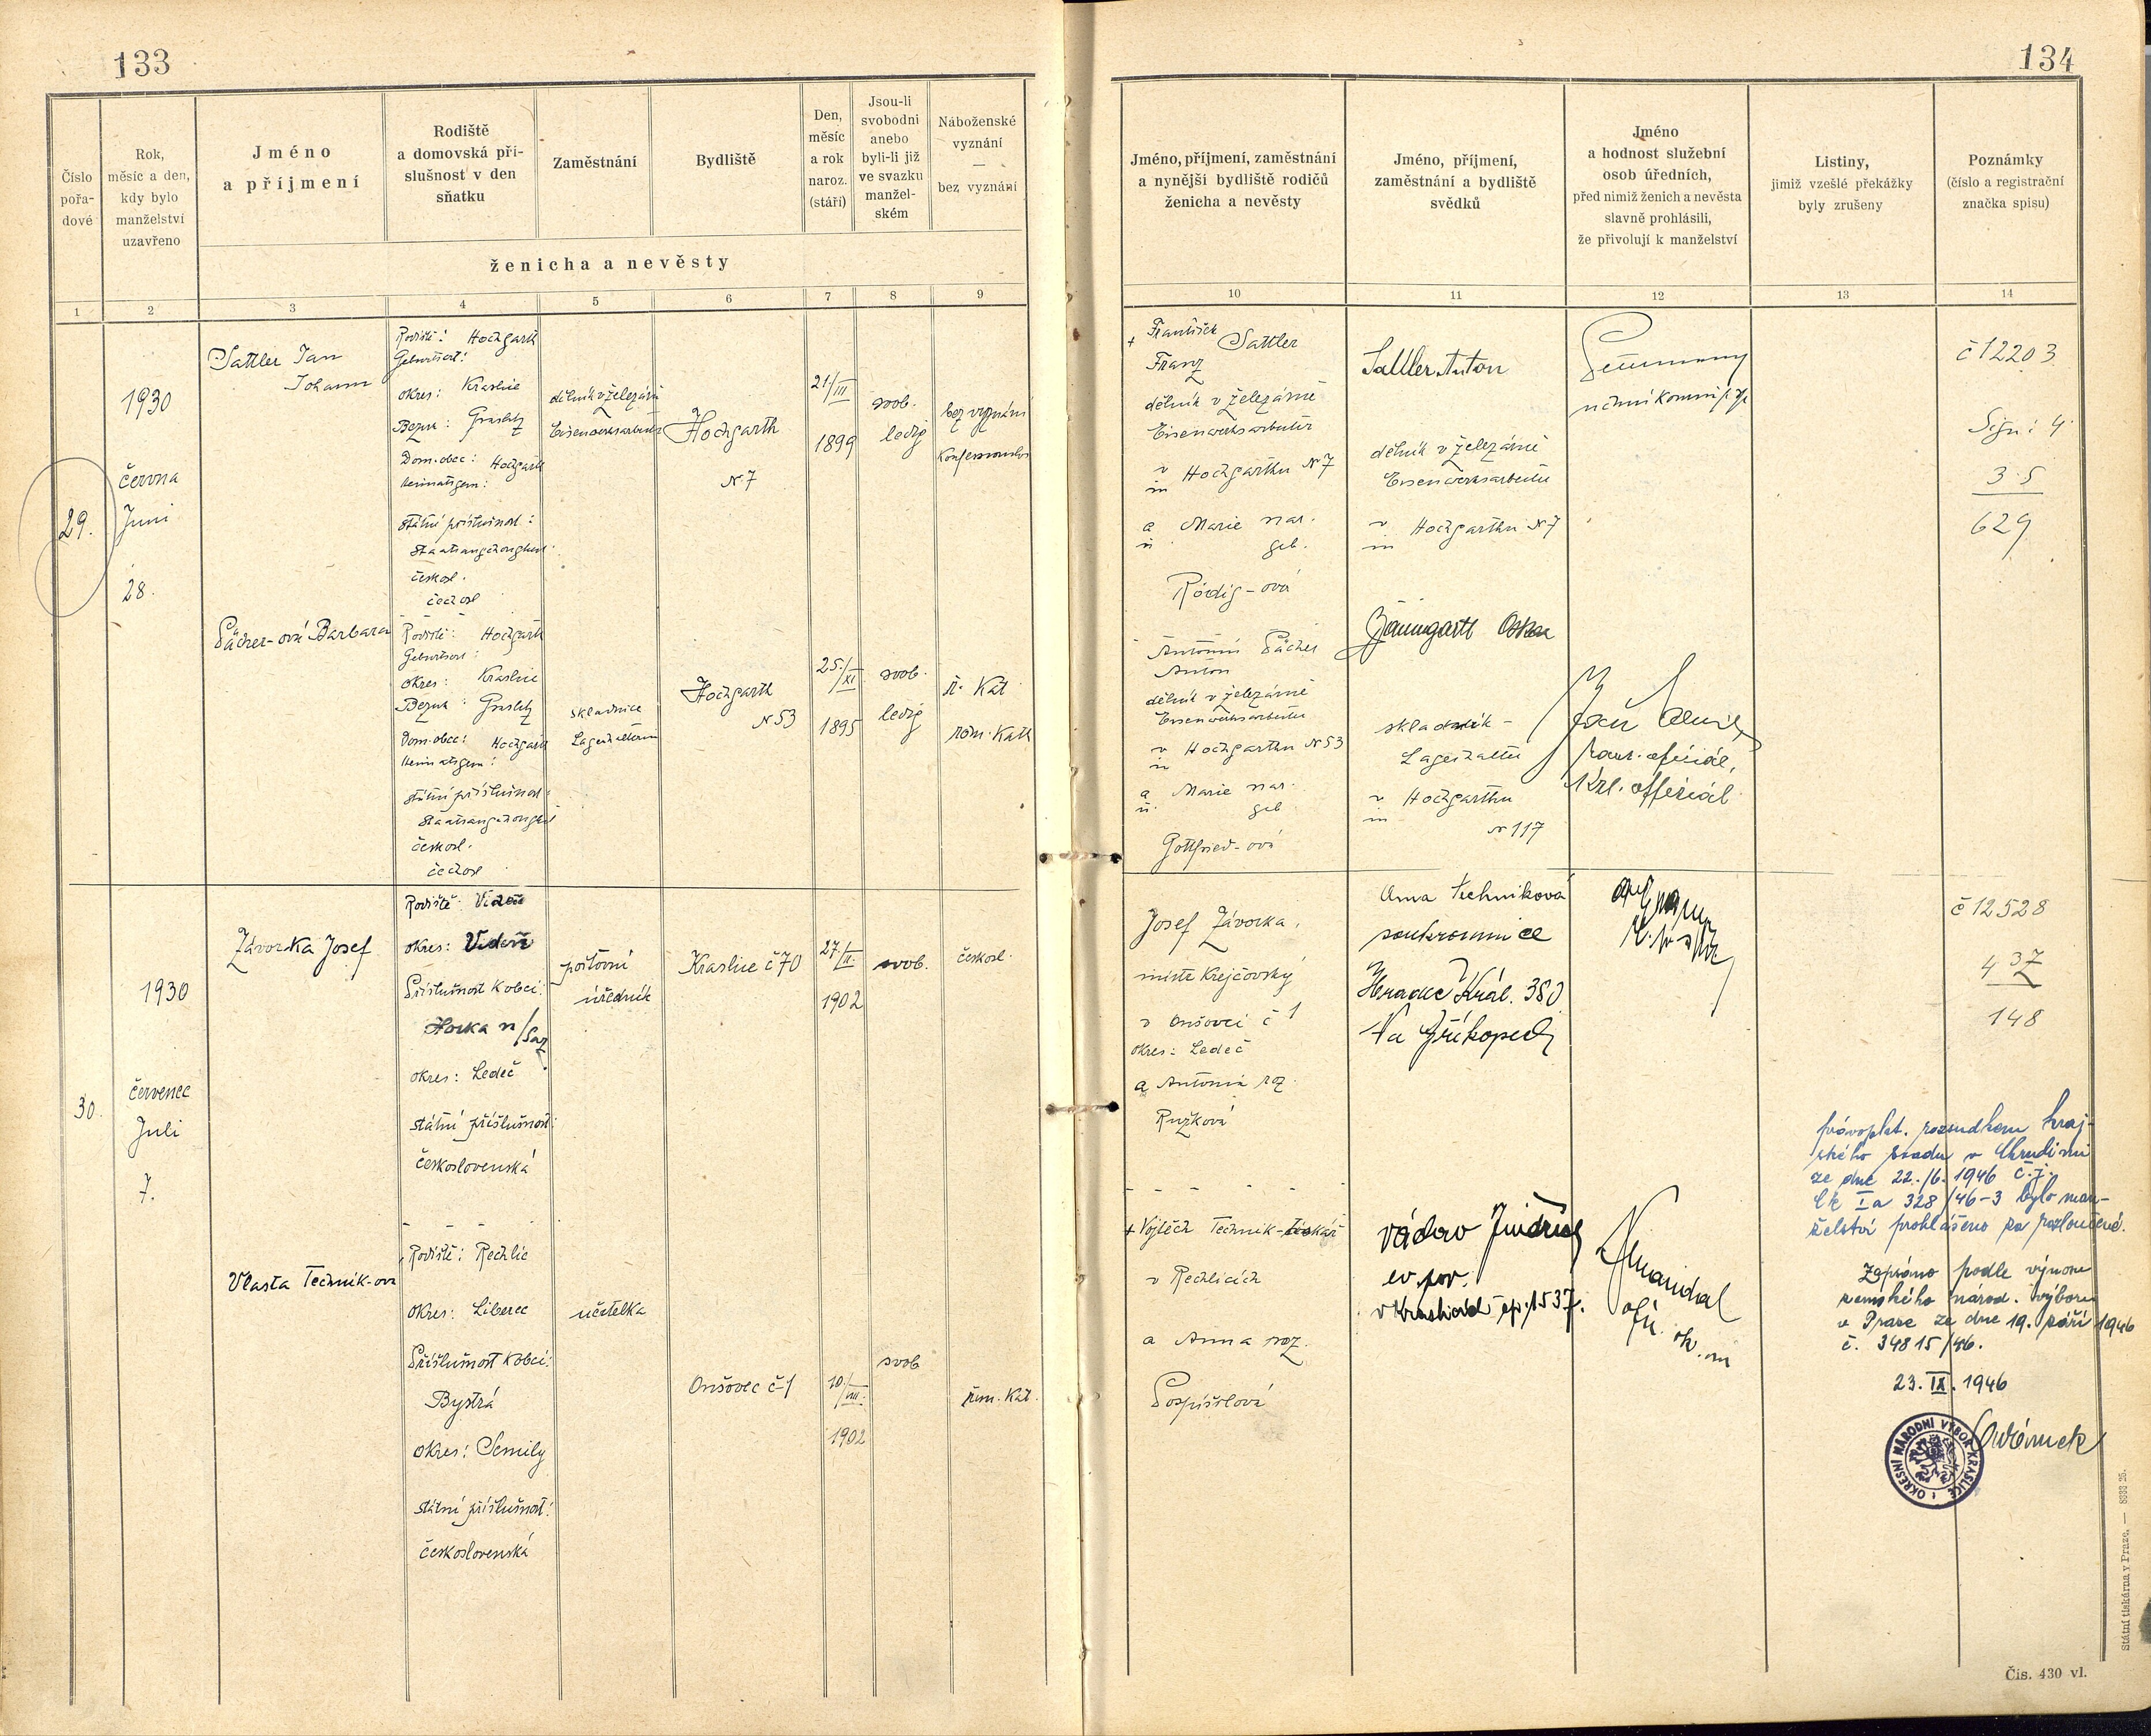 133
134
Číslo
pořa-
dové
Rok,
měsíc a den,
kdy bylo
manželství
uzavřeno
Jméno
a příjmení
Rodiště
a domovská pří-
slušnost v den
sňatku
Zaměstnání
Bydliště
Den,
měsíc
a rok
naroz.
(stáří)
Jsou-li
svobodni
anebo
byli-li již
ve svazku
manžel-
ském
Náboženské
vyznání
—
bez vyznání
ženicha a nevěsty
1
2
3
4
5
6
7
8
9
Jméno, příjmení, zaměstnání
a nynější bydliště rodičů
ženicha a nevěsty
Jméno, příjmení,
zaměstnání a bydliště
svědků
Jméno
a hodnost služební
osob úředních,
před nimiž ženich a nevěsta
slavně prohlásili,
že přivolují k manželství
Listiny,
jimiž vzešlé překážky
byly zrušeny
Poznámky
(číslo a registrační
značka spisu)
10
11
12
13
14
29.
1930
června
Juni
28.
Sattler Jan
Johann
Rodiště: Hochgarth
Geburtsort:
okres: Kraslice
Bezirk: Graslitz
Dom. obec: Hochgarth
Heimatsgem:
Státní příslušnost:
Staatsangehörigkeit
českosl.
čechosl
dělník v železárně
Eisenwerksarbeiter
Hochgarth
N 7
21/III
1899
svob.
ledig
bez vyznání
Konfessionslos
Pächer-ová Barbara
Rodiště: Hochgarth
Geburtsort:
okres: Kraslice
Bezirk: Graslitz
Dom. obec: Hochgarth
Heimatsgem:
státní příslušnost:
Staatsangehörigkeit
českosl.
čechosl
skladnice
Lagerhalterin
Hochgarth
N 53
25./XI
1895
svob.
ledig
ř. Kat
röm. Kath
+ František Sattler
Franz
dělník v železárně
Eisenwerksarbeiter
v Hochgarthu N 7
in
a Marie nar.
u. geb.
Rödig-ová
Antonín Pächer
Anton
dělník v železárně
Eisenwerksarbeiter
v Hochgarthu N 53
in
a Marie nar.
u. geb
Gottfried-ová
Sattler Anton
dělník v železárně
Eisenwerksarbeiter
v Hochgarthu N 7
in
Baumgartl Oskar
skladník -
Lagerhalter
v Hochgarthu
in N 117
Krl. offiziál
č 12203
Sign: 4
35
629
30.
1930
červenec
Juli
7.
Závorka Josef
Rodiště: Vídeň
okres: Vídeň
Příslušnost k obci:
Horka n/Saz
okres: Ledeč
státní příslušnost:
československá
poštovní
úředník
Kraslice č 70
27/II.
1902
svob.
českosl.
Vlasta Technik-ova
Rodiště: Rechlic
okres: Liberec
Příslušnost k obci:
Bystrá
okres: Semily
státní příslušnost:
československá
učitelka
Onšovec č 1
10./III.
1902
svob
řím. Kat.
Josef Závorka,
mistr krejčovský
v Onšovci č 1
okres: Ledeč
a Antonia roz.
Ružková
+ Vojtěch Technik-tiskař
v Rechlicích
a Anna roz.
Pospíšilová
Anna Techniková
soukromnice
Hradec Král. 380
Na Příkopech
Václav Jindřich
ev. por.
č 12528
437
148
právoplat. rozsudkem kraj-
ského soudu v Chrudimi
ze dne 22./6. 1946 č.j.
Ck Ia 328/46-3 bylo man-
želství prohlášeno za rozloučené.
Zapsáno podle výnosu
zemského národ. výboru
v Praze ze dne 19. září 1946
č. 34815/46.
23. IX. 1946
OKRESNÍ NÁRODNÍ VÝBOR KRASLICE
Státní tiskárna v Praze. — 8333 25.
Čís. 430 vl.